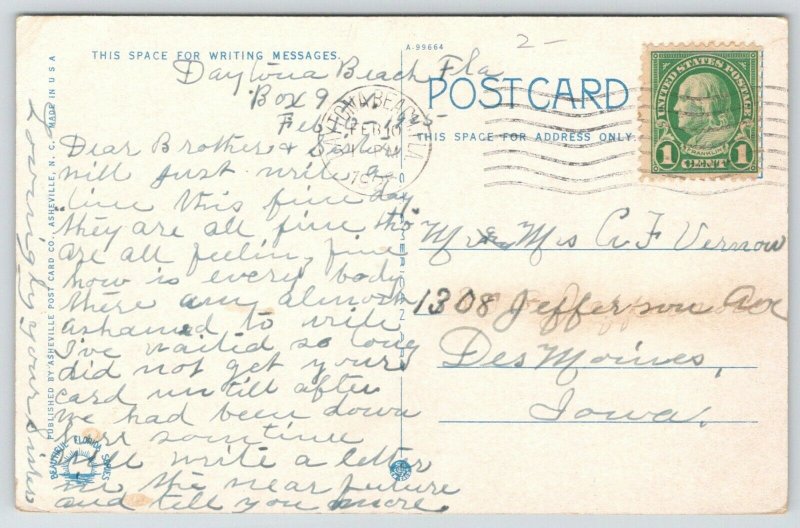 THIS SPACE FOR WRITING MESSAGES.
A-99664
2-
Daytona Beach Fla
Box 9
Feb 1925
Dear Brother &
will just write a
line this fine day
they are all fine tho
are all feeling fine
how is every body
there am almost
ashamed to write
I've waited so long
did not get yours
card untill after
we had been down
here somtime
will write a letter
in the near future
and tell you more.
Lovingly your Sister
PUBLISHED BY ASHEVILLE POST CARD CO., ASHEVILLE, N. C. MADE IN U S A
BEAUTIFUL FLORIDA SERIES
POSTCARD
THIS SPACE FOR ADDRESS ONLY
DAYTONA BEACH, FLA.
FEB
UNITED STATES POSTAGE
FRANKLIN
1 CENT 1
Mr & Mrs A F Vernow
1308 Jefferson Ave
Des Moines,
Iowa.